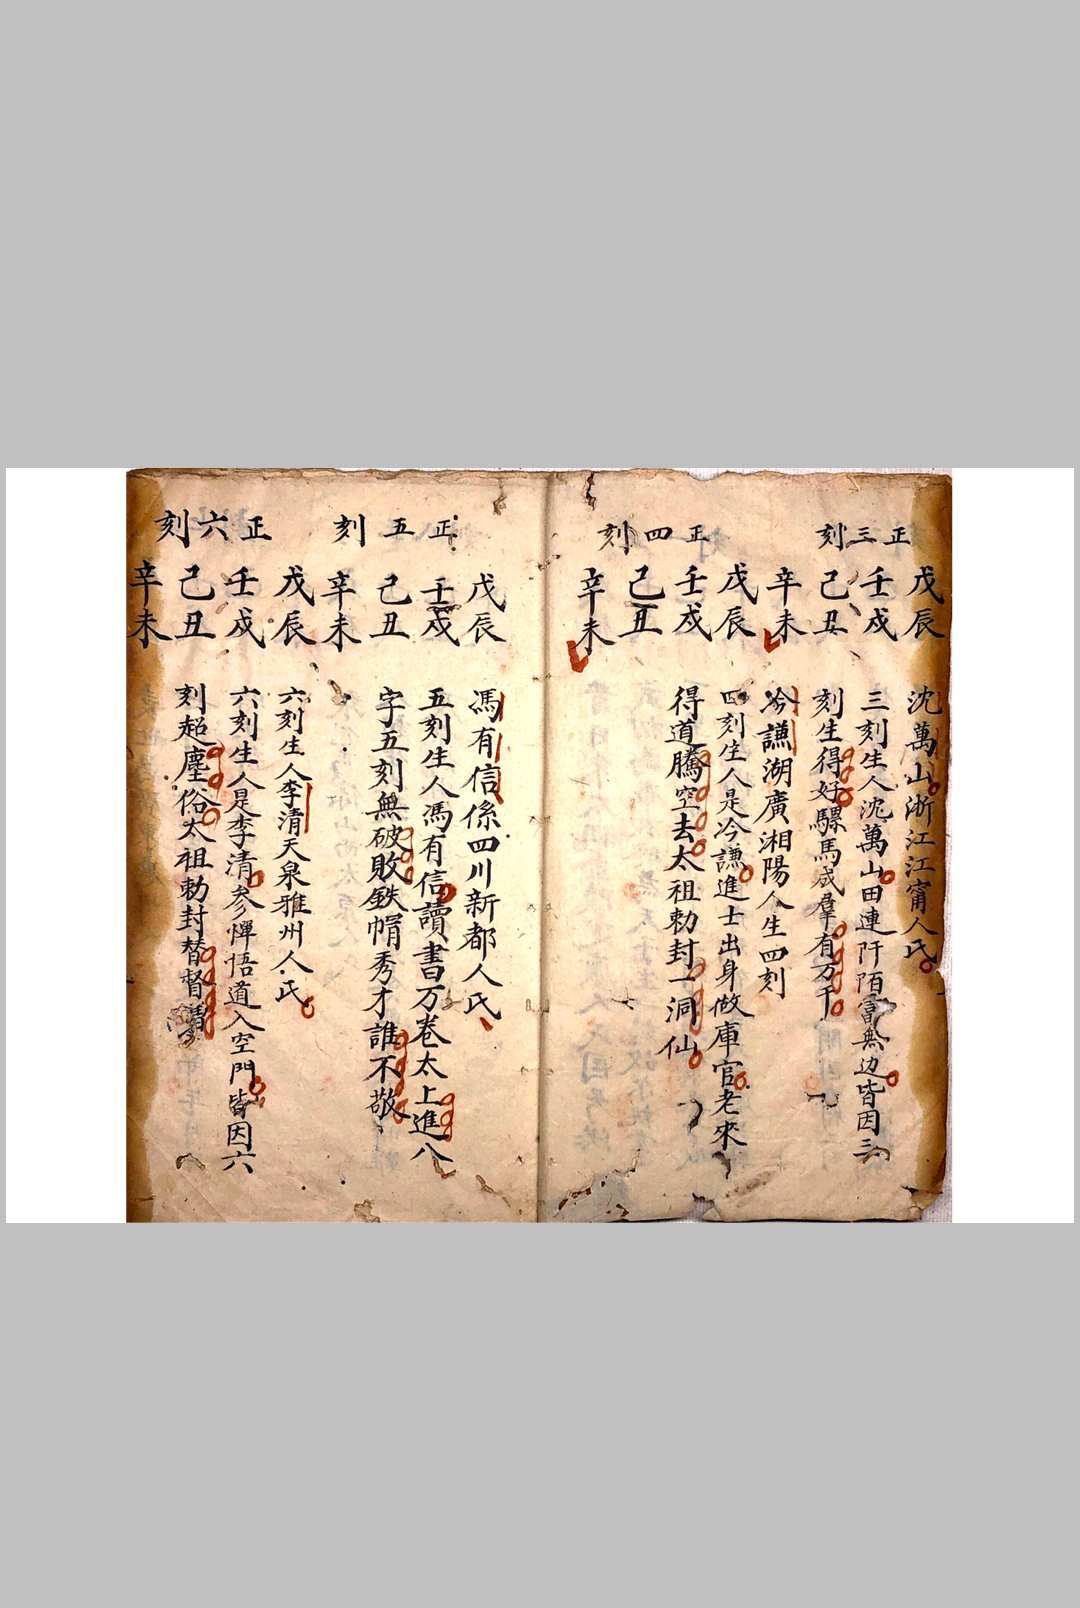 正三刻
戊辰
壬戌
己丑
辛未
沈萬山浙江江甯人氏
三刻生人沈萬山田連阡陌富無边皆因三
刻生得好騾馬成羣有万千
正四刻
戊辰
壬戌
己丑
辛未
冷謙湖廣湘陽人生四刻
四刻生人是冷謙進士出身做庫官老來
得道騰空去太祖勅封一洞仙
正五刻
戊辰
壬戌
己丑
辛未
馮有信係四川新都人氏
五刻生人馮有信讀書万卷太上進八
字五刻無破敗鉄帽秀才誰不敬
正六刻
戊辰
壬戌
己丑
辛未
六刻生人李清天泉雅州人氏
六刻生人是李清參惮悟道入空門皆因六
刻超塵俗太祖勅封替督